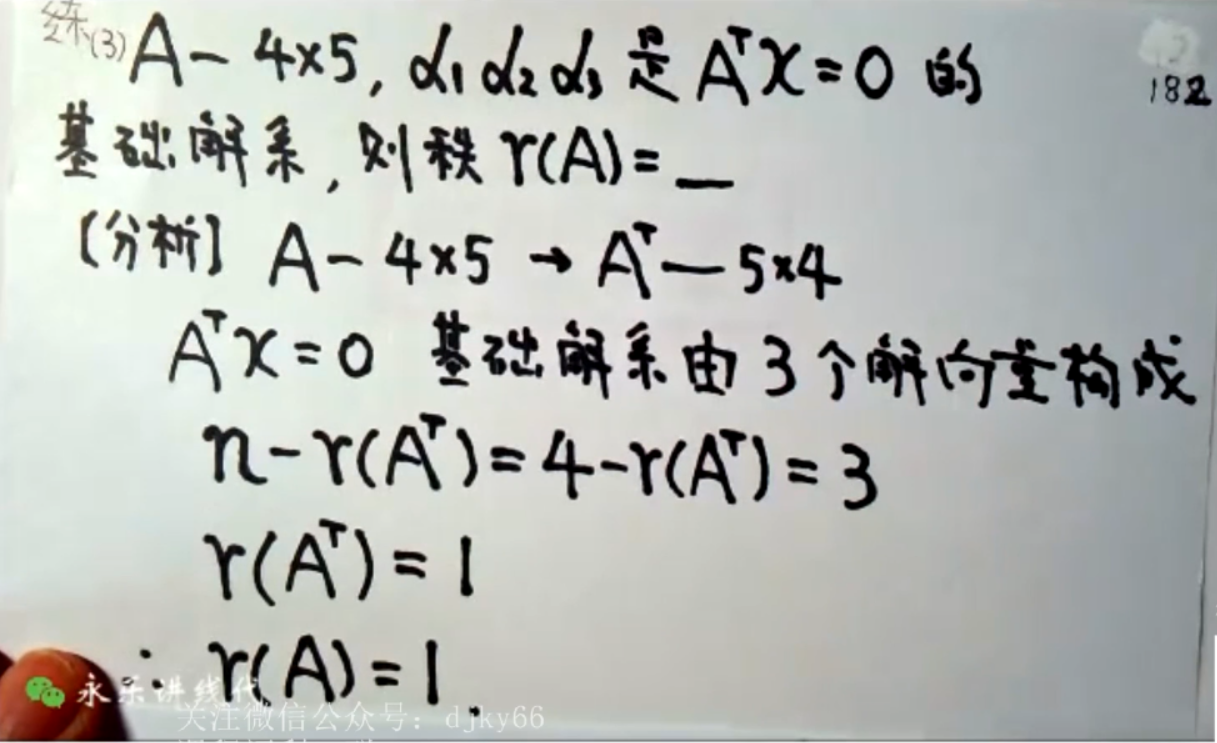 练(3) A — 4×5, α₁ α₂ α₃ 是 AᵀX = 0 的
182
基础解系, 则秩 r(A) = __
【分析】 A — 4×5 → Aᵀ — 5×4
AᵀX = 0 基础解系由 3 个解向量构成
n - r(Aᵀ) = 4 - r(Aᵀ) = 3
r(Aᵀ) = 1
∴ r(A) = 1.
永乐讲线代
关注微信公众号: djky66